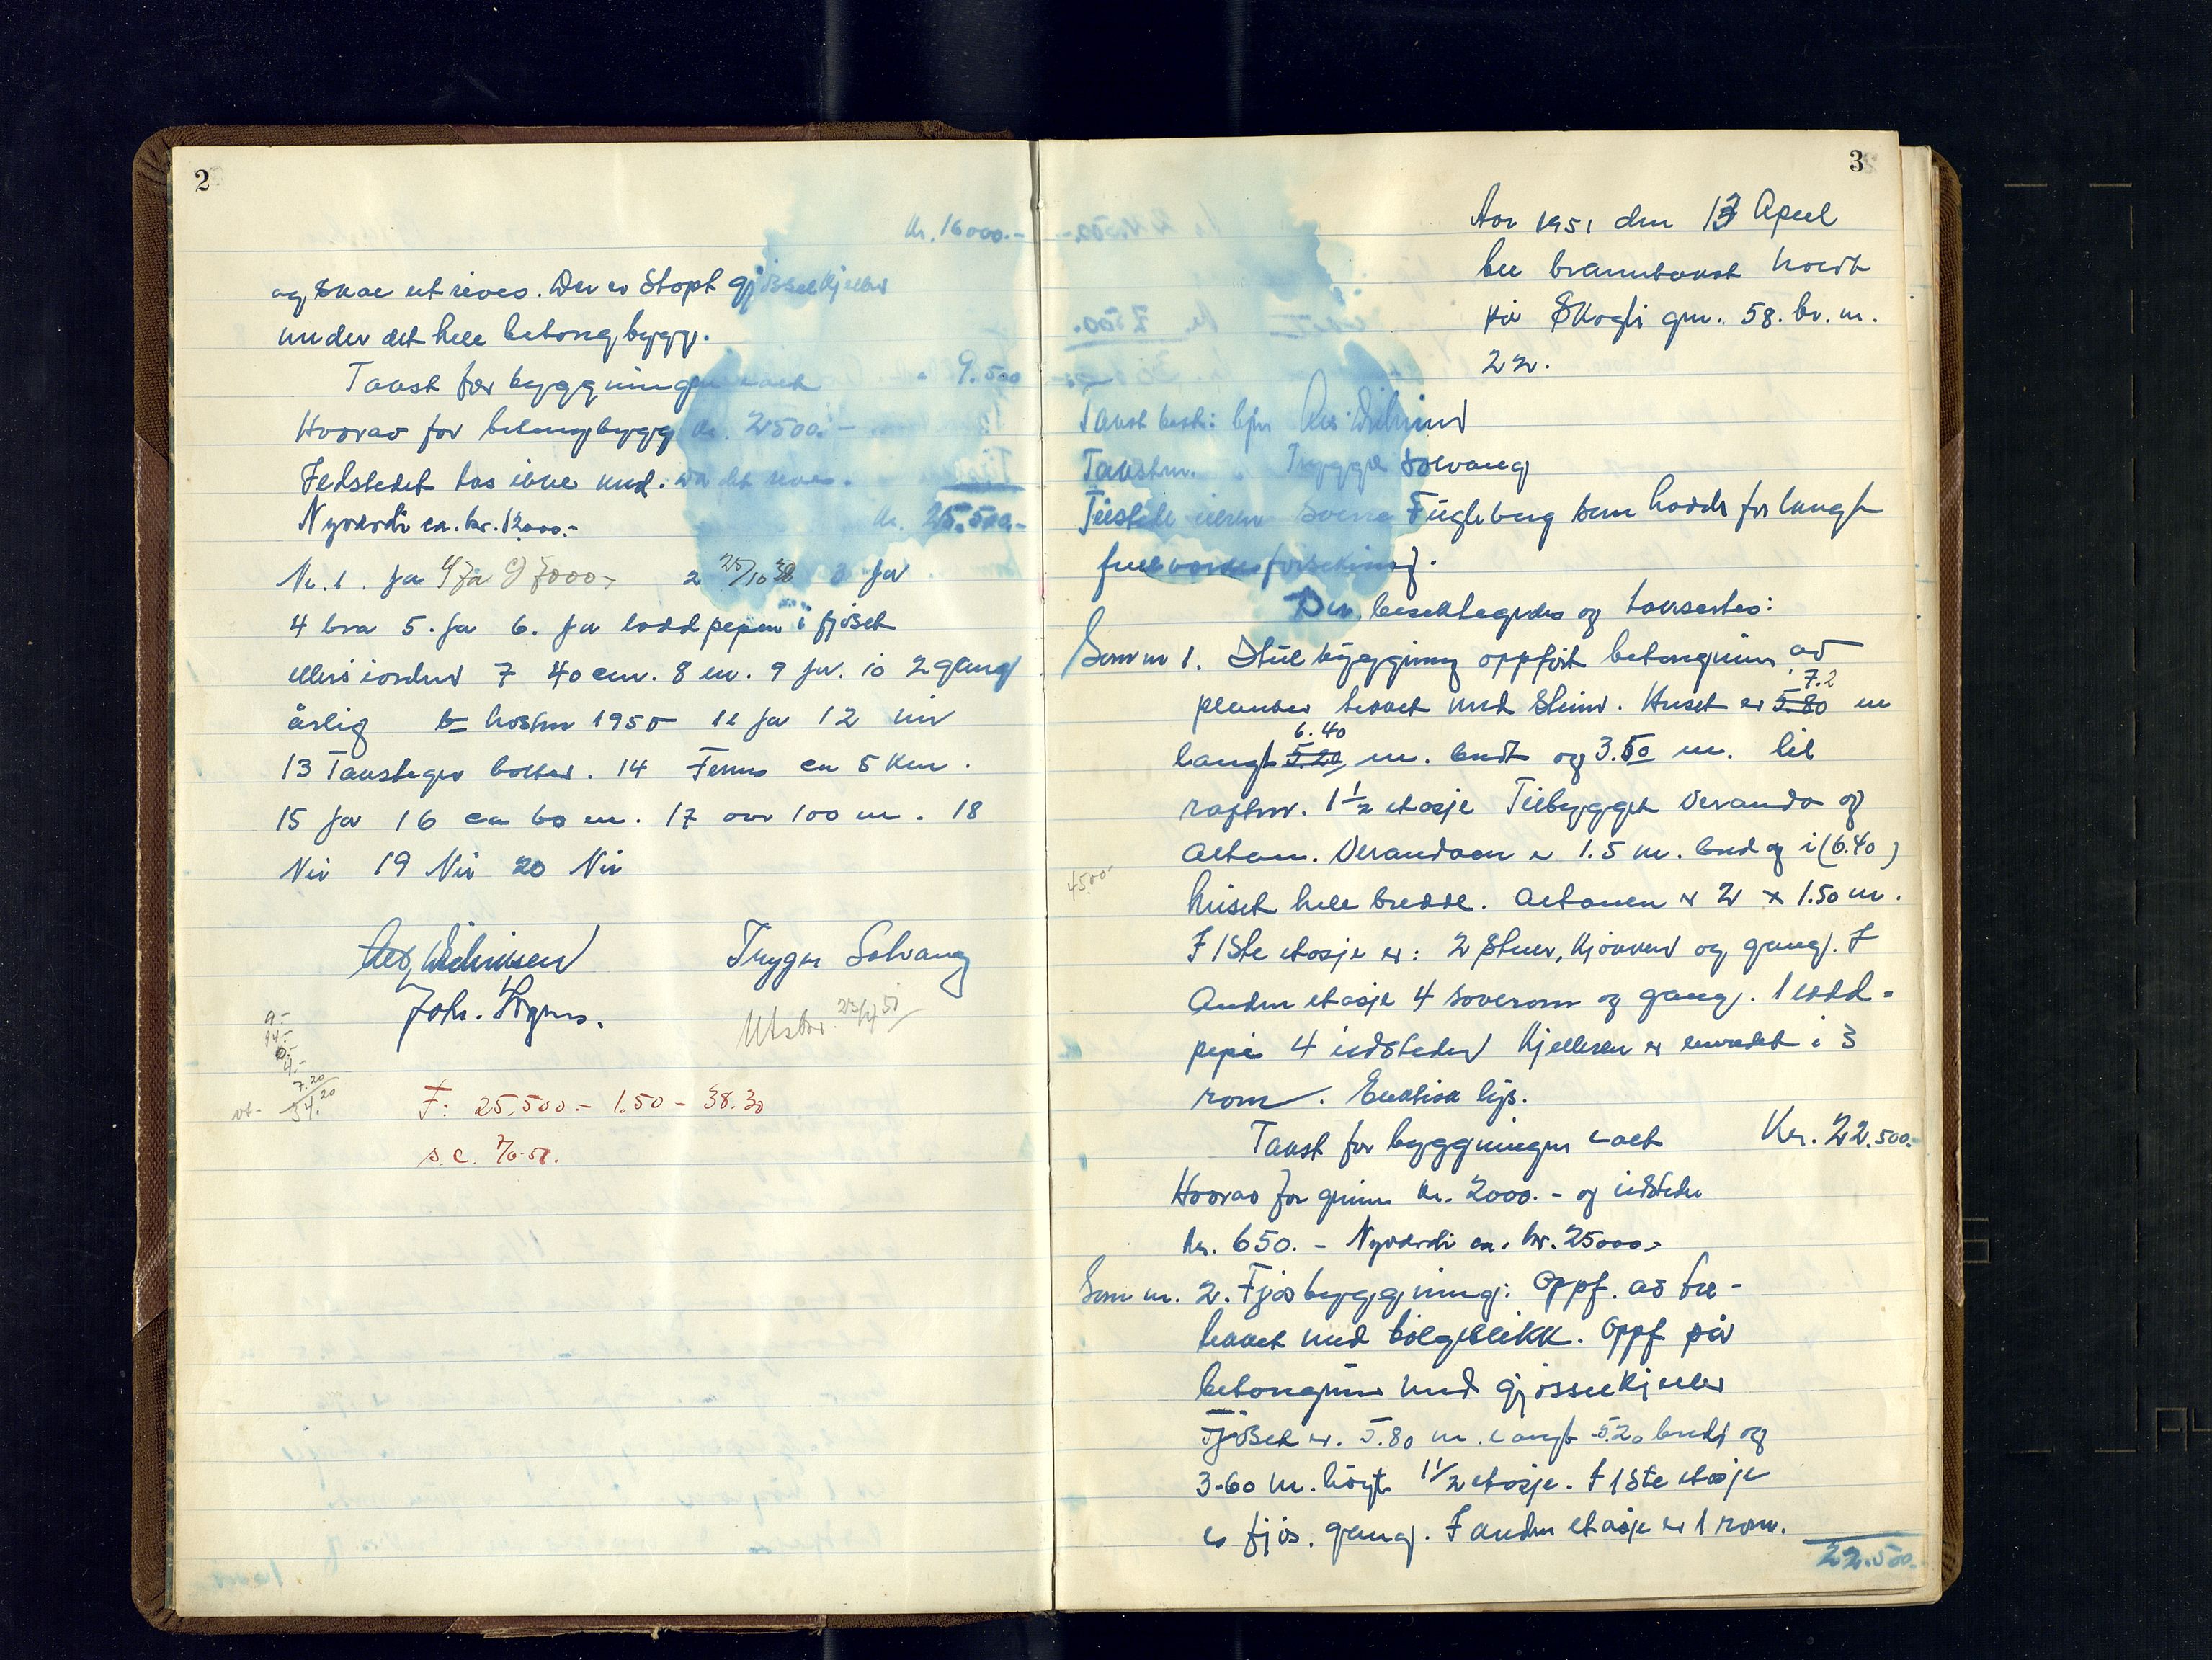 2
Kr. 16000.-
og skal utrives. Der er Støpt gjødselkjeller
under det hele betongbygg.
Takst for byggningen kalt " 9.500
Hvorav for betongbygg kr. 2500.-
Ildstedet tas ikke med. da det rives.
Nyverdi ca. kr. 12000.- Kr. 25.500.-
Nr. 1. ja 4 ja 9 7000.- 2 25/10 38 3 ja
4 bra 5. ja 6. ja lodd pepen i fjøset
ellers i orden 7 40 cm. 8 en. 9 ja. 10 2 gang
årlig høsten 1950 11 ja 12 nei
13 Takstiger bolter. 14 ca 5 km.
15 ja 16 ca 60 m. 17 over 100 m. 18
Nei 19 Nei 20 Nei
Trygve Solvang
Joh.
Utskr. 23/4 51
9.-
14.-
0.-
4.-
7.20
34.20
F: 25.500.- 1.50 - 38.30
s.e. 7/6-51.
3
Aar 1951 den 13 April
ble branntakst holdt
på Skogli gnr. 58. br. nr.
22.
Takst best: lfm
Takstm. " Trygve Solvang
Tilstede eieren Fugleberg som hadde forlangt
fullverdiforsikring.
Der besiktigedes og takseertes:
Som nr 1. Stuebyggning oppført betongmur av
7.2
planker tekket med Skiver. Huset er 5.80 m
6.40
langt 5.20 m. bredt og 3.50 m. til
raften. 1 1/2 etasje Tilbygget Veranda og
Altan. Verandaen er 1.5 m. bred og i (6.40)
4500.-
huset hele bredde. Altanen er 2 x 1.50 m.
I 1ste etasje er: 2 Stuer, Kjøkken og gang. I
Anden etasje 4 soverom og gang. 1 lodd-
pepe 4 ildsteder Kjelleren er innredet i 3
rom. Elektrisk lys.
Takst for byggningen kalt Kr. 22.500.-
Hvorav for grunn kr. 2000.- og ildsteder
kr. 650.- Nyverdi ca. kr. 25000.-
Som nr. 2. Fjøsbyggning: Oppf. av tre-
tekket med bølgeblikk. Oppf på
betongmur med gjødselkjeller
Fjøset er. 5.80 m. langt 5.20 bredt og
3-60 m. høyt 1 1/2 etasje. I 1ste etasje
er fjøs, gang. I anden etasje er 1 rom.
22.500.-